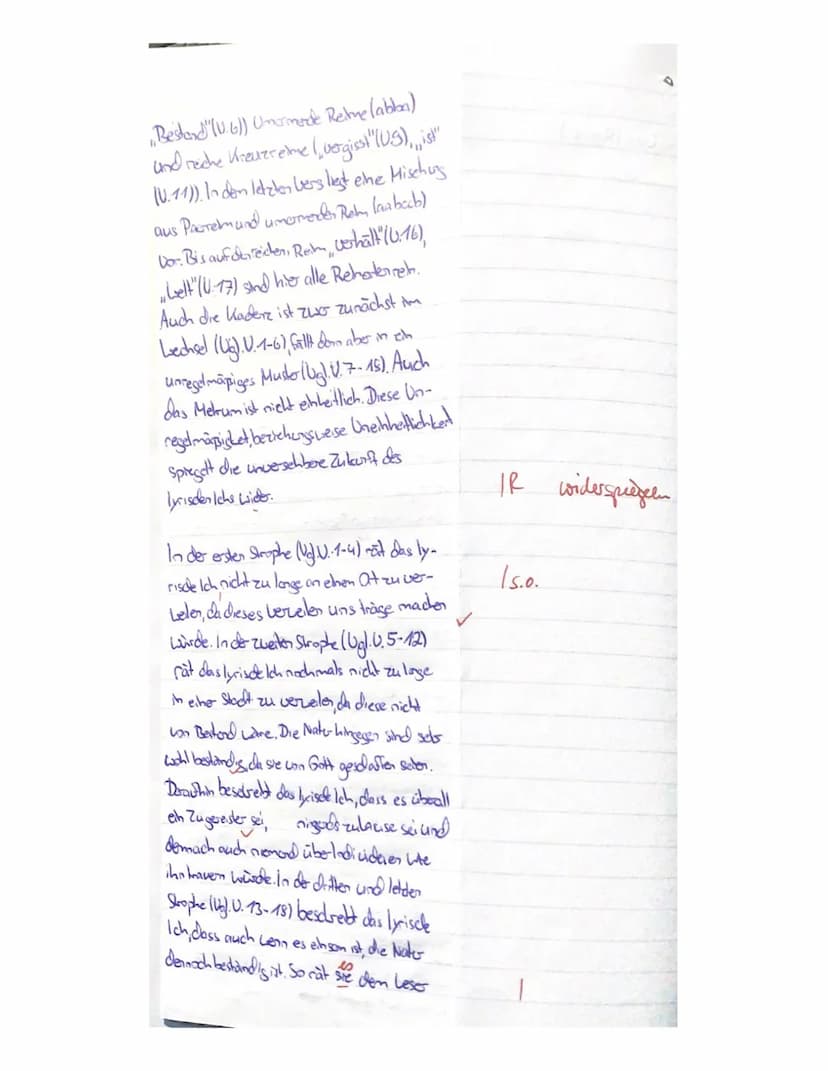 „Bestand"(V.6)) Umarmende Reime (abba)
und reiche Kreuzreime („vergisst"(V.9), „ist"
(V.11)). In den letzten Vers liegt eine Mischung
aus Paarreim und umarmenden Reim (aabccb)
vor. Bis auf den reichen Reim „verhält"(V.16),
„Welt"(V.17) sind hier alle Reime rein.
Auch die Kadenz ist zwar zunächst im
Wechsel (Vgl. V. 1-6), fällt dann aber in ein
unregelmäßiges Muster (Vgl. V. 7-18). Auch
das Metrum ist nicht einheitlich. Diese Un-
regelmäßigkeit, beziehungsweise Uneinheitlichkeit
spiegelt die unversehbare Zukunft des
lyrischen Ichs wider.
IR widerspiegeln
In der ersten Strophe (Vgl. V. 1-4) rät das ly-
rische Ich nicht zu lange an einen Ort zu ver-
weilen, da dieses verweilen uns träge machen
würde. In der zweiten Strophe (Vgl. V. 5-12)
rät das lyrische Ich nochmals nicht zu lange
in einer Stadt zu verweilen, da diese nicht
von Bestand wäre. Die Natur hingegen sind sehr
wohl beständig, da sie von Gott geschaffen seien.
Daraufhin beschreibt das lyrische Ich, dass es überall
ein Zugereister sei, nirgends zuhause sei und
demnach auch niemand über
ihn trauern würde. In der dritten und letzten
Strophe (Vgl. V. 13-18) beschreibt das lyrische
Ich, dass auch wenn es einsam ist, die Natur
dennoch beständig ist. So rät sie es dem Leser
/ s.o.
|